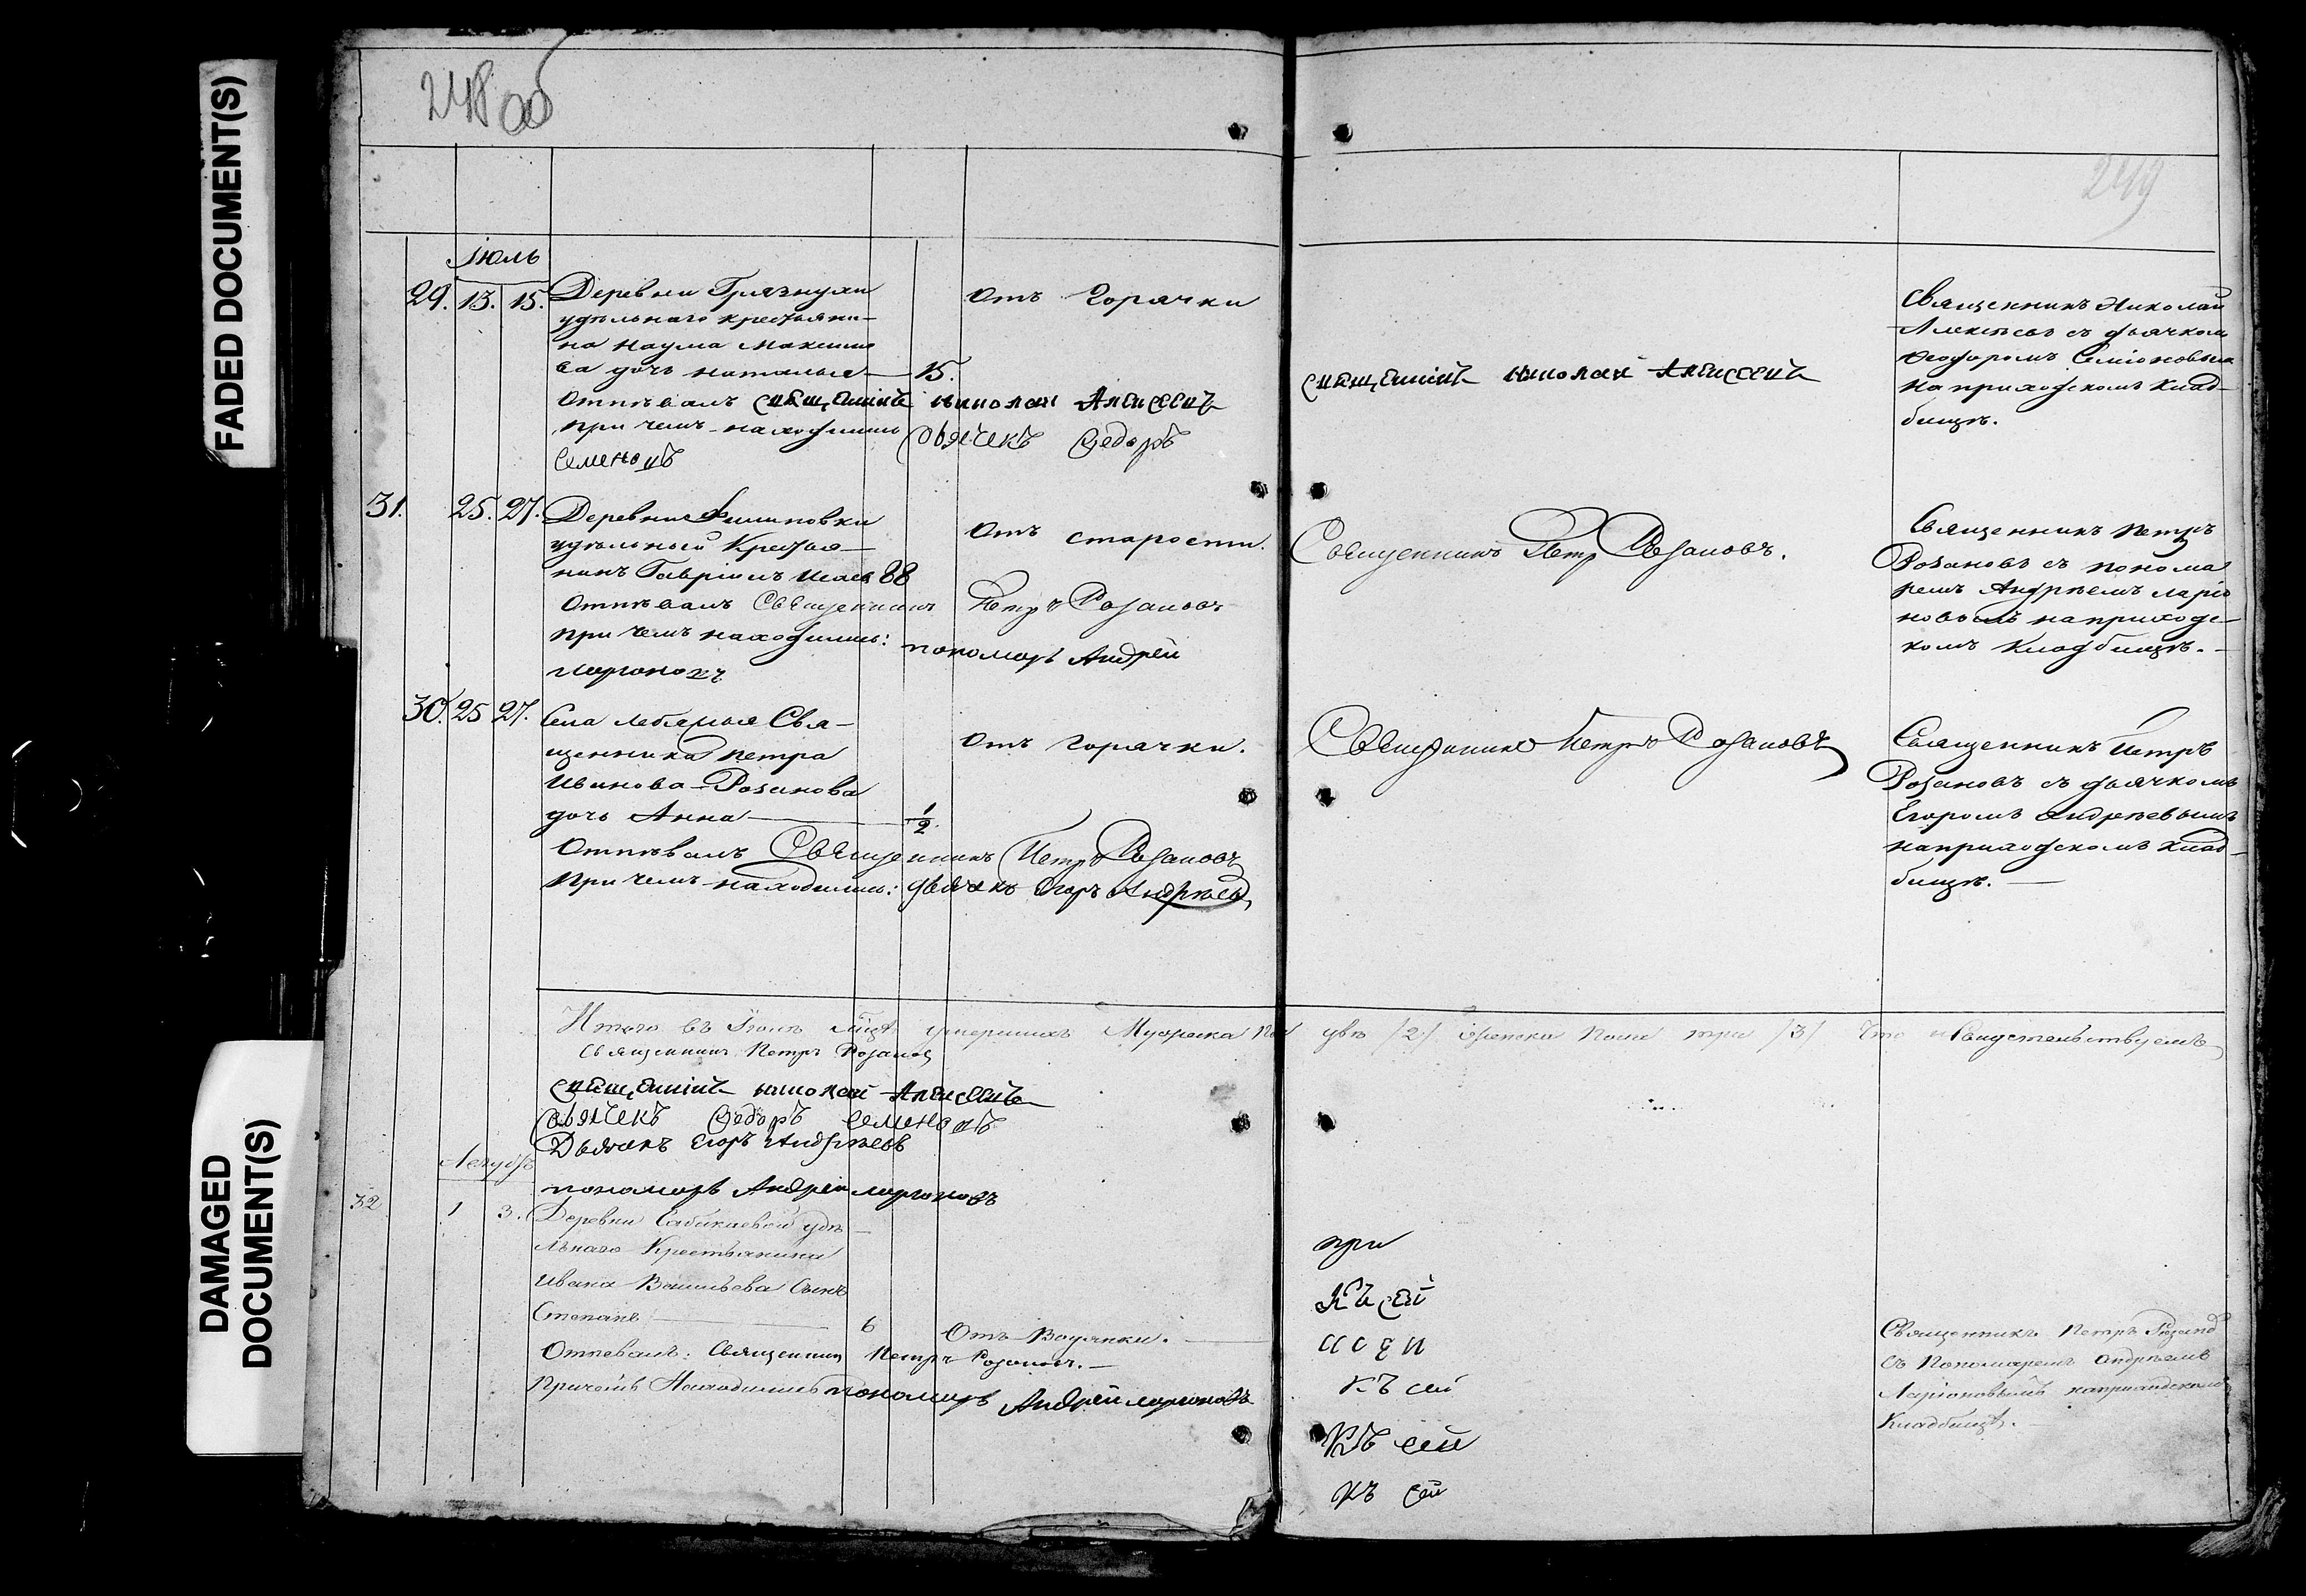 FADED DOCUMENT(S)
DAMAGED
DOCUMENT(S)
248 об
249
Июль
29. 13. 15. Деревни Грязнухи
удѣльнаго крестьяни-
на Наума Максимо
ва дочь Наталья — 15.
Отъ Горячки
Отпѣвалъ священникъ Николай Алексеевъ
при чемъ находились дьячекъ Федоръ
Семеновъ
священникъ Николай Алексеевъ
Священникъ Николай
Алексѣевъ съ дьячкомъ
Феодоромъ Семіоновымъ
на приходскомъ клад-
бищѣ.
31. 25. 27. Деревни Филиповки
удѣльный Крестья-
нинъ Гавріилъ Исаевъ 88
Отъ старости.
Отпѣвалъ Священникъ Петръ Розановъ
при чемъ находились: пономарь Андрей
Ларионовъ
Священникъ Петръ Розановъ.
Священникъ Петръ
Розановъ съ понома
ремъ Андрѣемъ Ларіо
новымъ на приходс-
комъ Кладбищѣ. —
30. 25 27. Села Лебяжья Свя-
щенника Петра
Иванова Розанова
дочь Анна — 1/2.
Отъ горячки.
Отпѣвалъ Священникъ Петръ Розановъ
При чемъ находились: дьячекъ Егоръ Андрѣевъ
Священникъ Петръ Розановъ
Священникъ Петръ
Розановъ съ дьячкомъ
Егоромъ Андрѣевымъ
на приходскомъ клад-
бищѣ. —
Итого въ Іюлѣ мцѣ умершихъ Мужеска пол двѣ /2/ женска пола три /3/ Что и Свидетельствуемъ
Священникъ Петръ Розановъ
священникъ Николай Алексеевъ
дьячекъ Федоръ Семеновъ
Дьячекъ Егоръ Андрѣевъ
пономарь Андрей Ларионовъ
Августъ
32 1 3. Деревни удѣ-
льнаго Крестьянина
Ивана Васильева Сынъ
Степанъ — 6
Отъ Водянки. —
Отпевалъ: Священникъ Петръ Розановъ. —
Причемъ Находились пономарь Андрей Ларионовъ
при
къ сей
къ сей
къ сей
къ сей
Священникъ Петръ Розановъ
Съ Пономаремъ Андрѣемъ
Ларіоновымъ на приходскомъ
Кладбищѣ. —